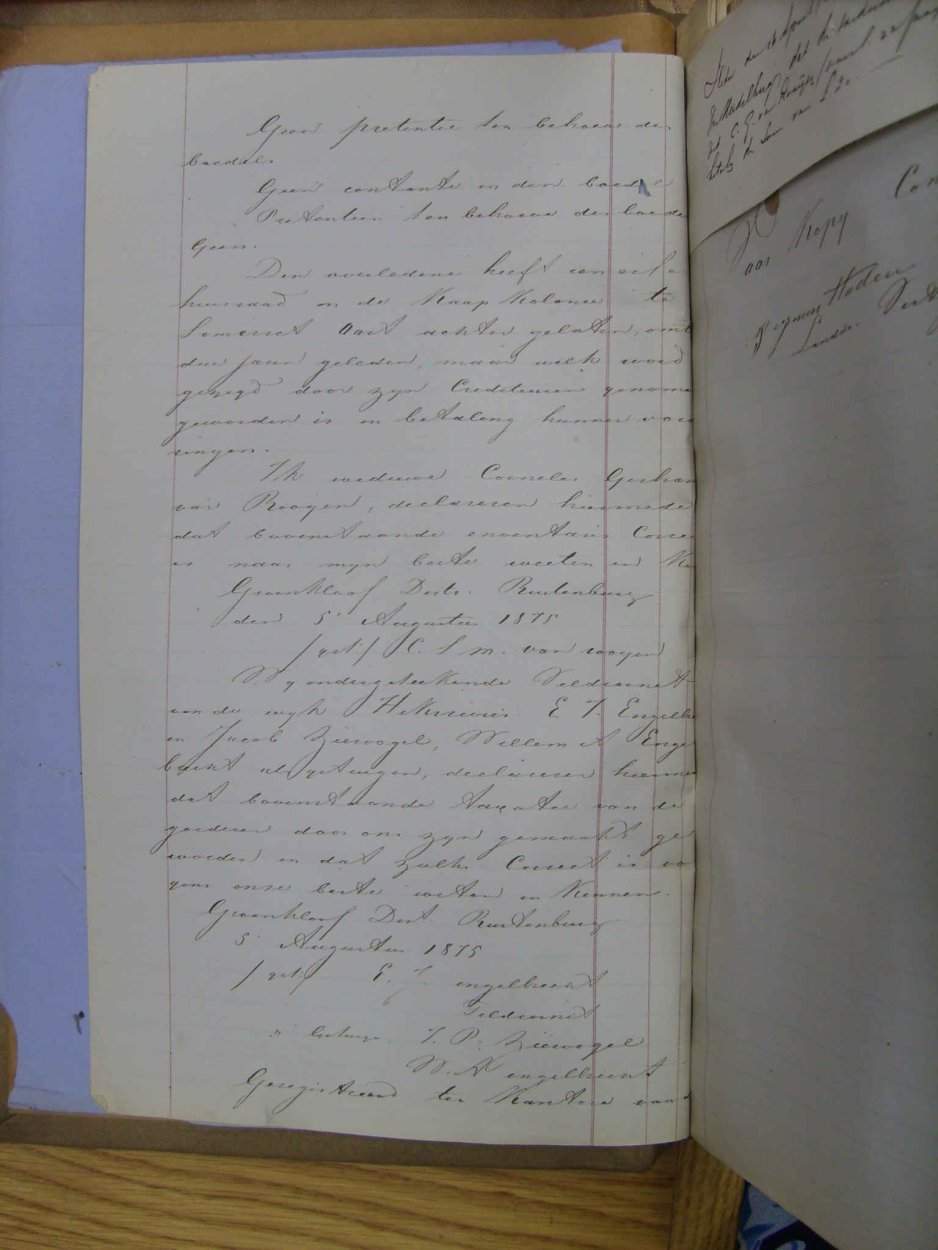 Geen pretentie ten behoeve des
boedels
Geen contante in den boedel
Pretentien ten behoeve des boede
Geen.
Den overledene heeft een erf e
huisraad in de Kaap Kolonie te
Somerset Oost achter gelaten, omt
drie jaren geleden, maar welk word
gezegd door zyn Crediteuren genome
geworden is in betaling hunner vor
ringen.
Ik weduwe Cornelis Gerhar
van Rooyen, declareren hiermede
dat bovenstaande inventaris Corre
is naar myn beste weeten en Ke
Groenkloof Distr. Rustenburg
den 5 Augustus 1875
/get:/ C. S. M. van rooyen
Wy ondergeteekende Veldcornet
van de wyk Hekrivier E J. Engelbr
en Jacob Zievogel, Willem A Enge
brecht als getuigen, declareren hierme
dat bovenstaande taxatie van de
goederen door ons zyn gemaakt ge
worden en dat zulks Correct is vo
gens onse beste weten en Kennen.
Groenkloof Dist Rustenburg
5 Augustus 1875
/get:/ E. J. engelbrecht
Veldcornet
" Getuige. J. P. Zievogel
W. A engelbrecht
Geregistreerd ten Kantore van
den 16 April
Middelburg
C. G. van Rooyen
de Som van
Con
voor Kopy